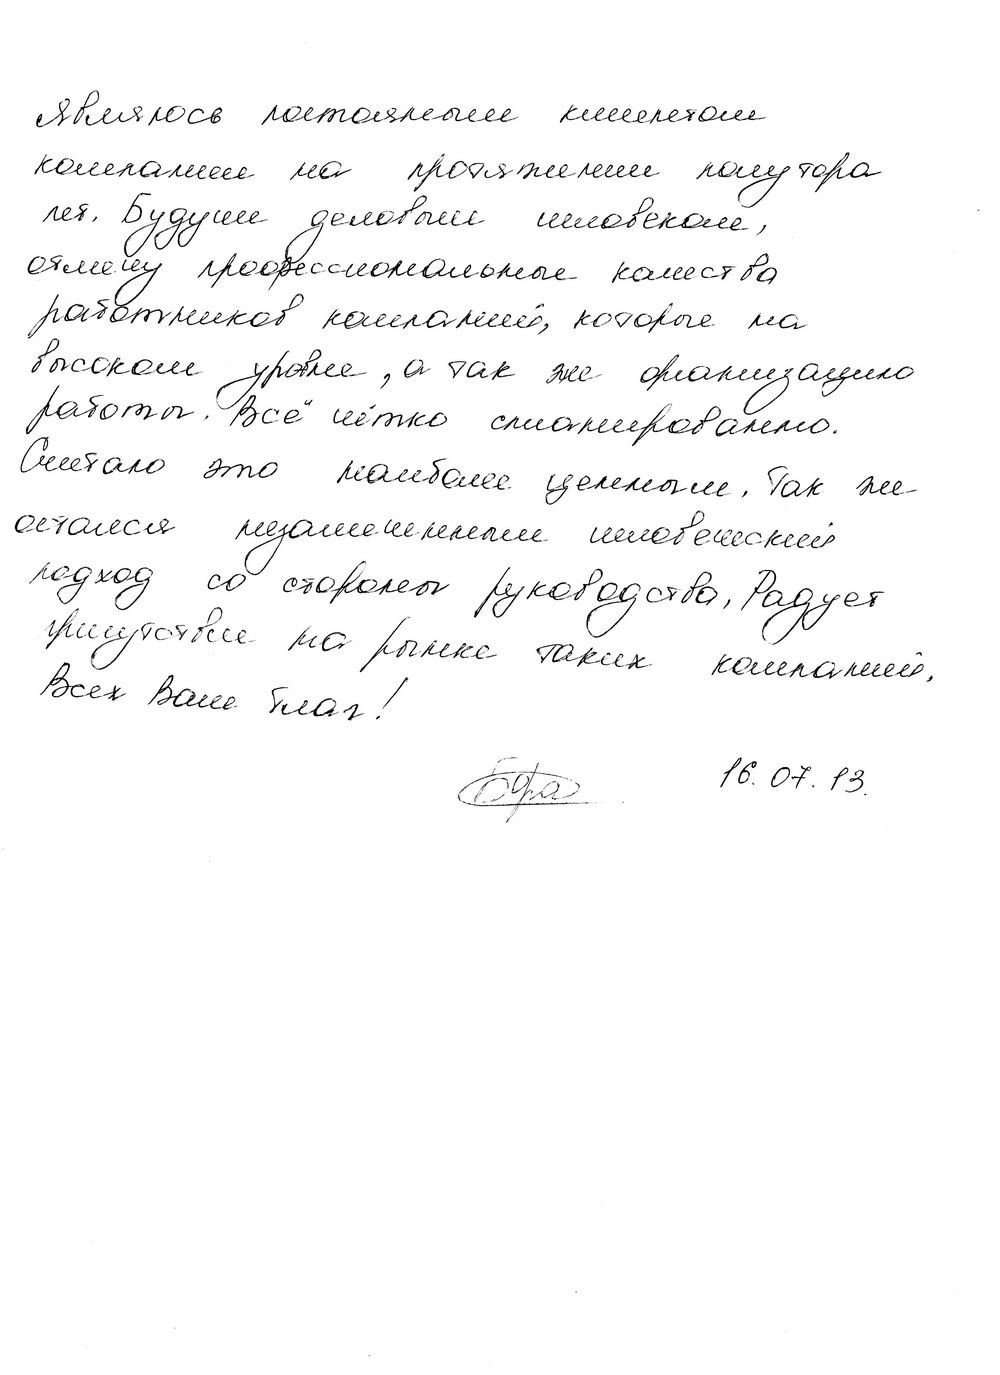 Являюсь постоянным клиентом
компании на протяжении полутора
лет. Будучи деловым человеком,
отмечу профессиональные качества
работников компании, которые на
высоком уровне, а так же организацию
работы. Всё чётко спланированно.
Считаю это наиболее ценным. Так же
остался незамеченным человеческий
подход со стороны руководства. Радует
присутствие на рынке таких компаний.
Всех Вам благ!
16.07.13.